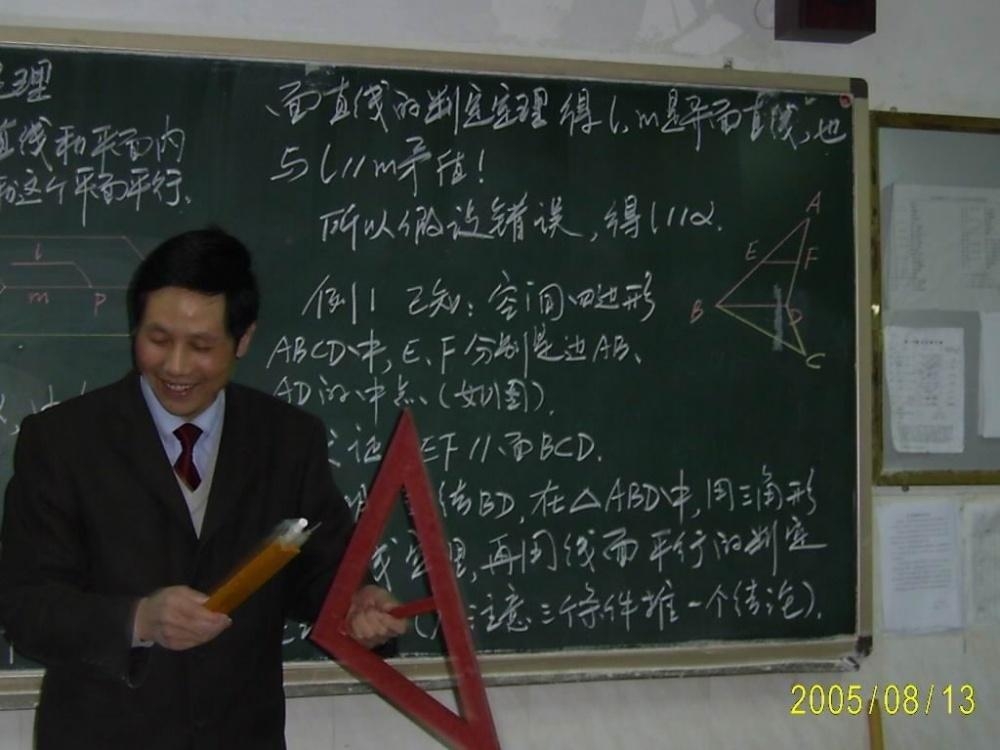 定理
直线和平面内
和这个平面平行.
l
m
P
面直线的判定定理得l,m是平面直线,也
与l//m矛盾!
所以假设错误,得l//α.
例1 已知:空间四边形
ABCD中,E、F分别是边AB、
AD的中点(如图).
求证:EF//面BCD.
结BD,在△ABD中,用三角形
线定理,再用线面平行的判定
注意三个条件推一个结论).
A
E
F
B
D
C
2005/08/13